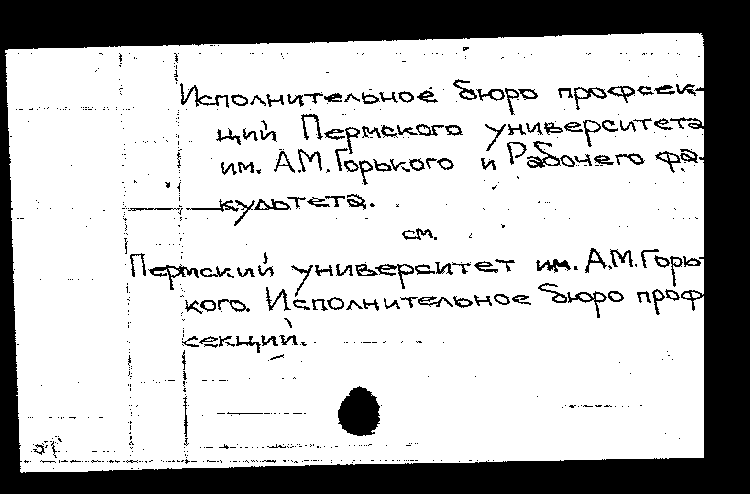 Исполнительное бюро профсек-
ций Пермского университета
им. А.М.Горького и Рабочего фа-
культета.
см.
Пермский университет им. А.М.Горь-
кого. Исполнительное бюро проф
секций.